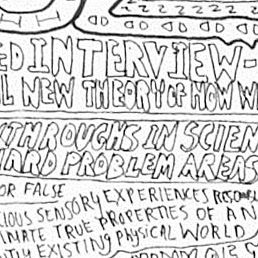 ZZZZZZZZZ
ED INTERVIEW-
L NEW THEORY OF HOW W
KTHROUGHS IN SCIEN
HARD PROBLEM AREAS
OR FALSE
CIOUS SENSORY EXPERIENCES
INATE TRUE PROPERTIES OF AN
TLY EXISTING PHYSICAL WORLD